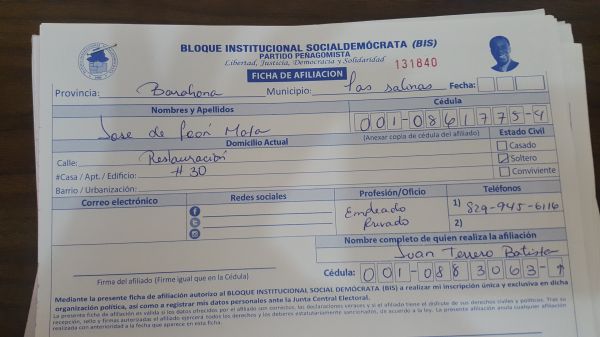 BLOQUE INSTITUCIONAL SOCIALDEMÓCRATA (BIS)
PARTIDO PEÑAGOMISTA
Libertad, Justicia, Democracia y Solidaridad
FICHA DE AFILIACION 131840
Provincia: Barahona Municipio: Las salinas Fecha:
Nombres y Apellidos Cédula
Jose de Leon Mata 001-0861775-4
Domicilio Actual (Anexar copia de cédula del afiliado) Estado Civil
Calle: Restauración Casado
#Casa / Apt. / Edificio: # 30 Soltero
Barrio / Urbanización: Conviviente
Correo electrónico Redes sociales Profesión/Oficio Teléfonos
Empleado 1) 829-945-6116
Privado 2)
Nombre completo de quien realiza la afiliación
Juan Terrero Batista
Firma del afiliado (Firme igual que en la Cédula) Cédula: 001-0883063-
Mediante la presente ficha de afiliación autorizo al BLOQUE INSTITUCIONAL SOCIAL DEMÓCRATA (BIS) a realizar mi inscripción única y exclusiva en dicha
organización política, así como a registrar mis datos personales ante la Junta Central Electoral.
La presente ficha de afiliación es válida si los datos ofrecidos por el afiliado son correctos, las declaraciones veraces y si el afiliado tiene el disfrute de sus derechos civiles y políticos. Tras su
recepción, sello y firmas autorizadas el afiliado ejercerá todos los derechos y los deberes estatutariamente sancionados, de acuerdo a la ley. La presente afiliación anula cualquier afiliación
realizada con anterioridad a la fecha que aparece en esta ficha.